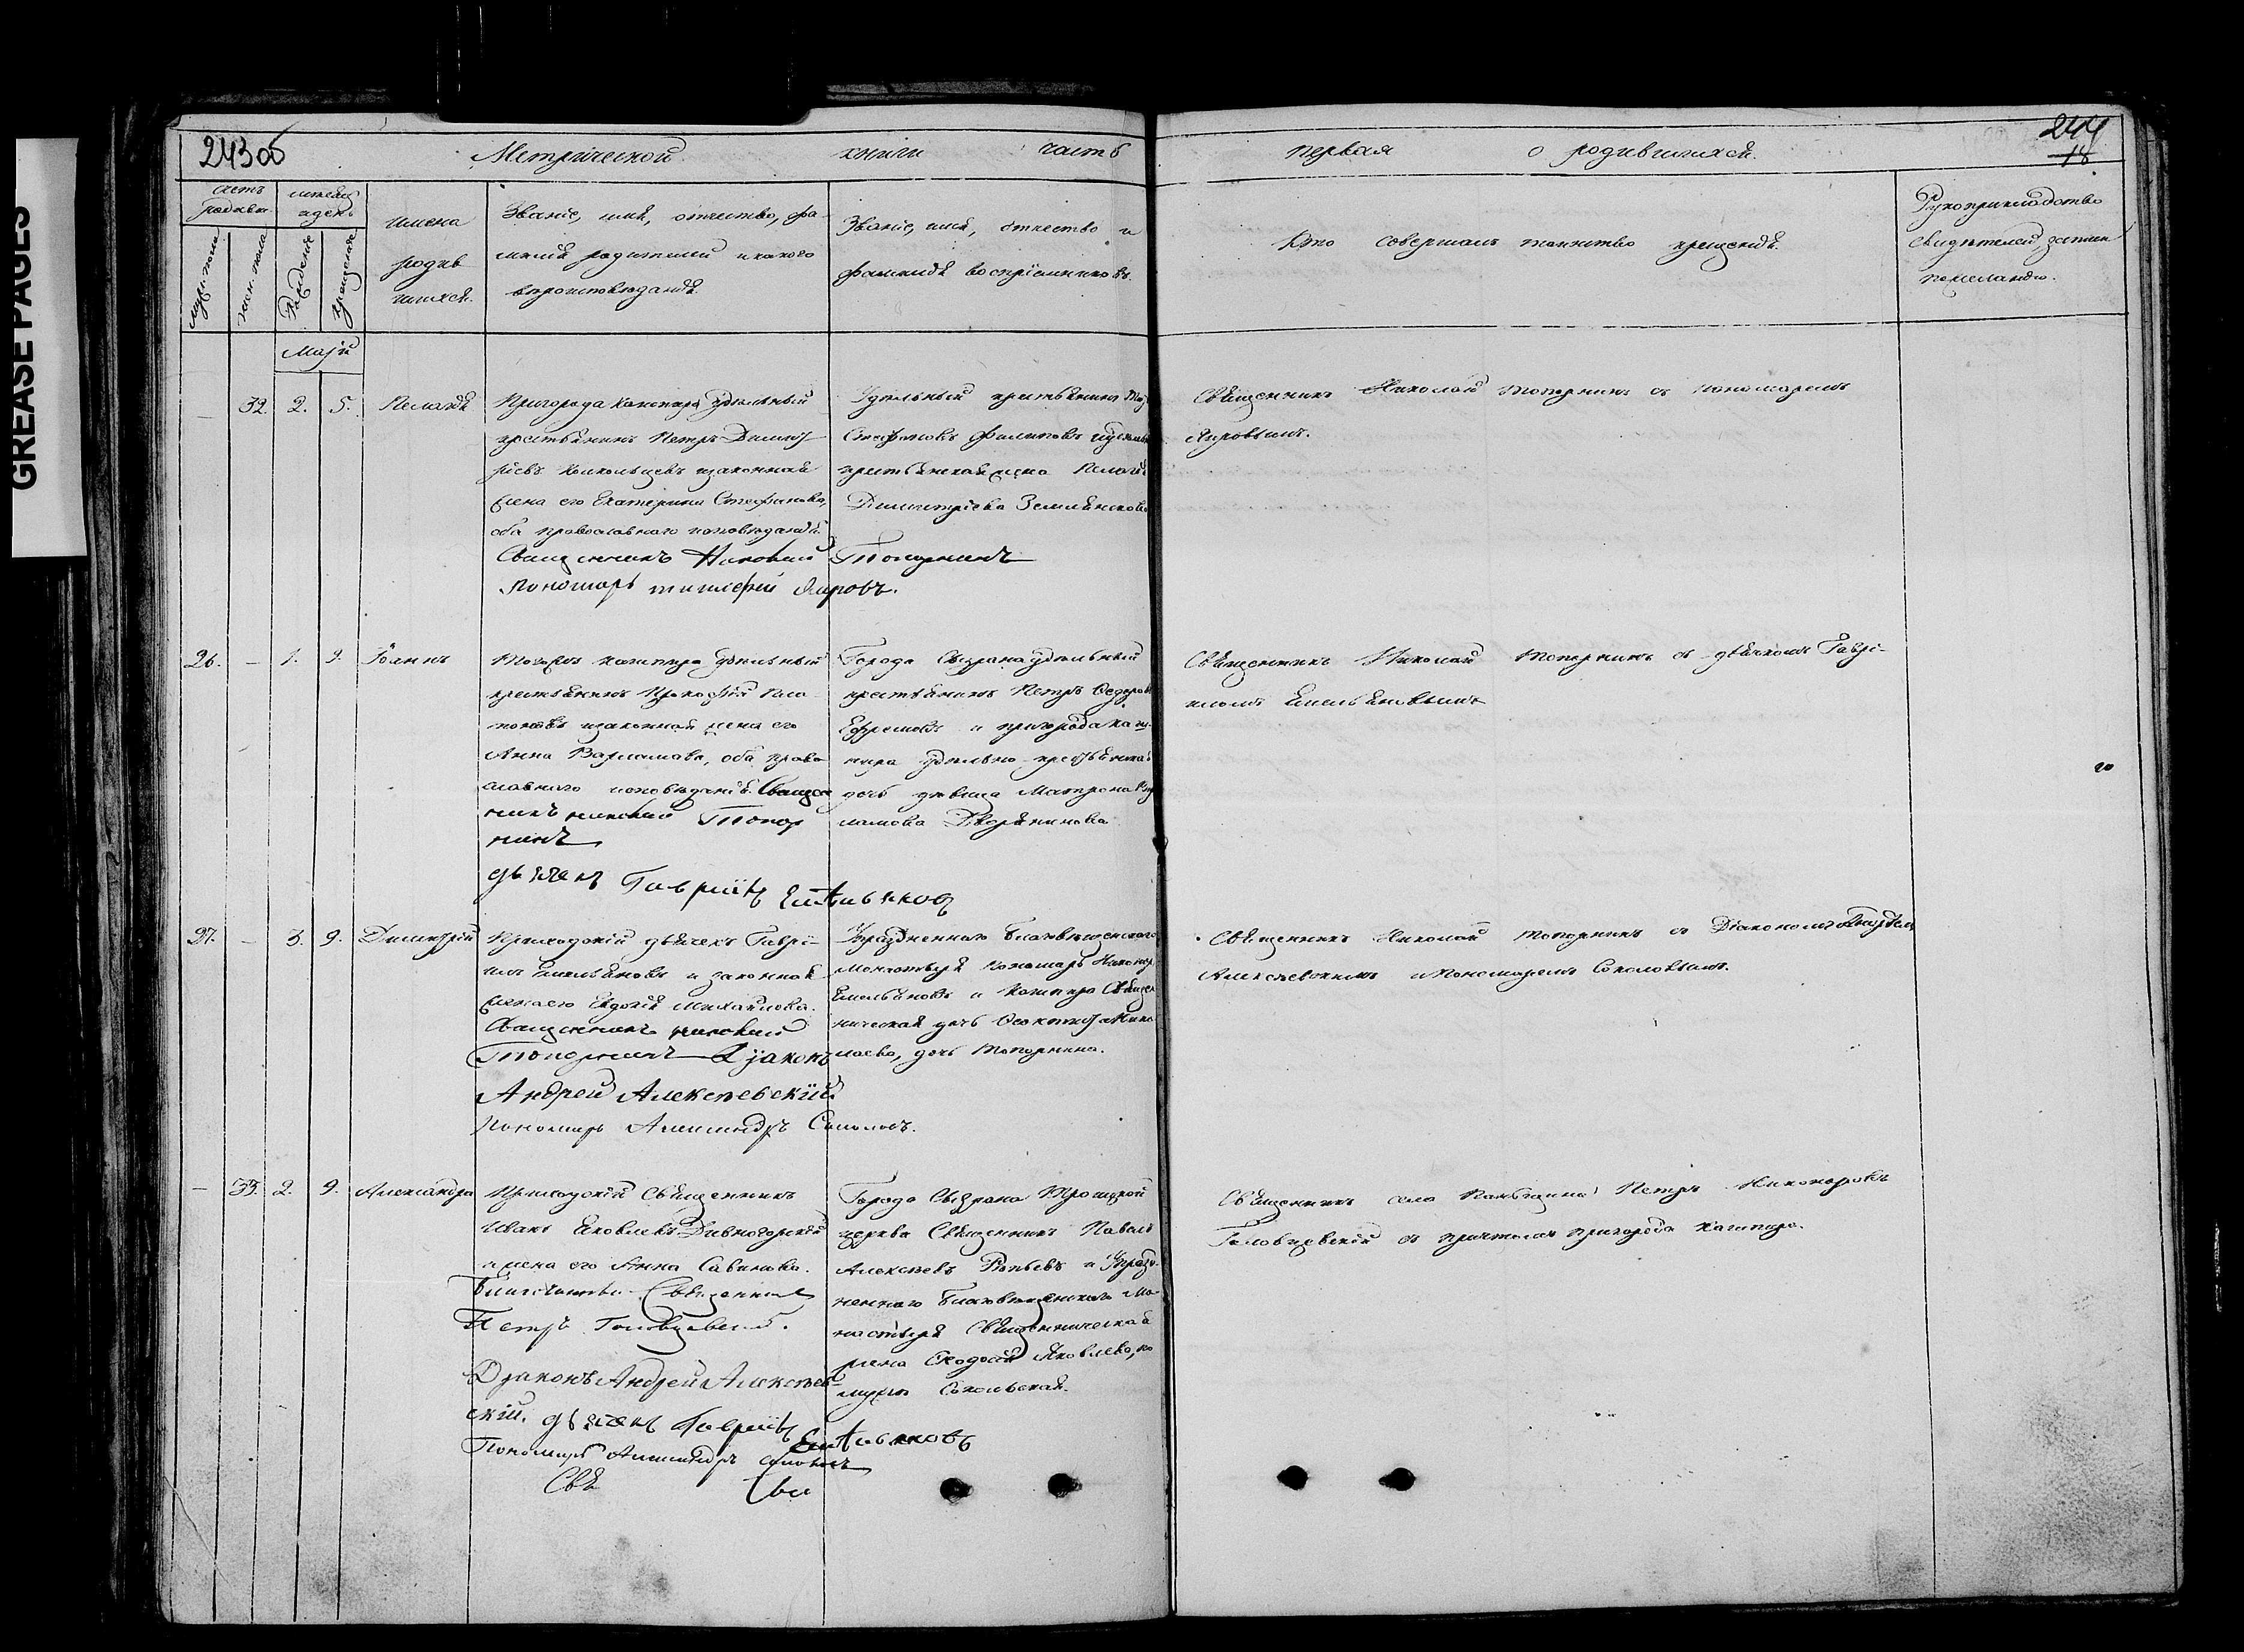 GREASE PAGES
243об
Метрической книги часть
первая о родившихся.
244
18
счетъ родивш.
мѣсяцъ и день
имена родившихся.
Званіе, имя, отчество, фа-
милія родителей и какого
вѣроисповѣданія.
Званіе, имя, отчество и
фамилія воспріемниковъ.
Кто совершалъ таинство крещенія.
Рукоприкладство
свидѣтелей записи
по желанію.
муж. пола
жен. пола
Рожденія
крещенія
Маія
— 32. 2. 5. Пелагія
Пригорода Кашпира удѣльный
крестьянинъ Петръ Димит-
ріевъ и законная
жена его Екатерина Стефанова,
оба православнаго исповѣданія.
Священникъ Николай Топорнинъ
Пономарь Яировъ.
Удѣльный крестьянинъ
Стефановъ Филиповъ
крестьянская жена Пелагія
Димитріева Землянскова
Священникъ Николай Топорнинъ съ пономаремъ
Яировымъ.
26. — 1. 9. Іоаннъ
Тогожъ Кашпира удѣльный
крестьянинъ Прокофій
и законная жена его
Анна Варламова, оба право-
славнаго исповѣданія. Священ
никъ Николай Топор
нинъ
дьячекъ Гавріилъ Емельяновъ
Города Сызрана удѣльный
крестьянинъ Петръ Ѳедоровъ
Ефремовъ и пригорода Каш-
пира удѣльно крестьянская
дочь девица Матрона
Дворянинова
Священникъ Николай Топорнинъ съ дьячкомъ Гаврі-
иломъ Емельяновымъ
27. — 3. 9. Димитрій
Приходскій дьячекъ Гаврі-
илъ Емельяновъ и законная
жена его Евдокія Михайлова.
Священникъ Николай
Топорнинъ Діаконъ
Андрей Алексѣевскій
Пономарь Александръ Соколовъ.
Упраздненнаго Благовѣщенскаго
Монастыря пономарь Никоноръ
Емельяновъ и Кашпира Священ
ническая дочь Ѳеоктиста Нико
лаева, дочь Топорнина.
Священникъ Николай Топорнинъ съ Діакономъ Андреемъ
Алексѣевскимъ и Пономаремъ Соколовымъ.
— 33. 2. 9. Александра
Приходскій Священникъ
Иванъ Яковлевъ Дивногорскій
и жена его Анна Савинова.
Священникъ
Петръ Головцевскій.
Діаконъ Андрей Алексѣев-
скій. дьячекъ Гавріилъ Емельяновъ
Пономарь Александръ Соколовъ
Свя
Города Сызрана Троицкой
церкви Священникъ Павелъ
Алексѣевъ и Упразд-
неннаго Благовѣщенскаго Мо-
настыря Священническая
жена Ѳеодосія Яковлева, по
мужѣ Сокольская.
Священникъ села Петръ Никоноровъ
Головцевскій съ причтомъ пригорода Кашпира.